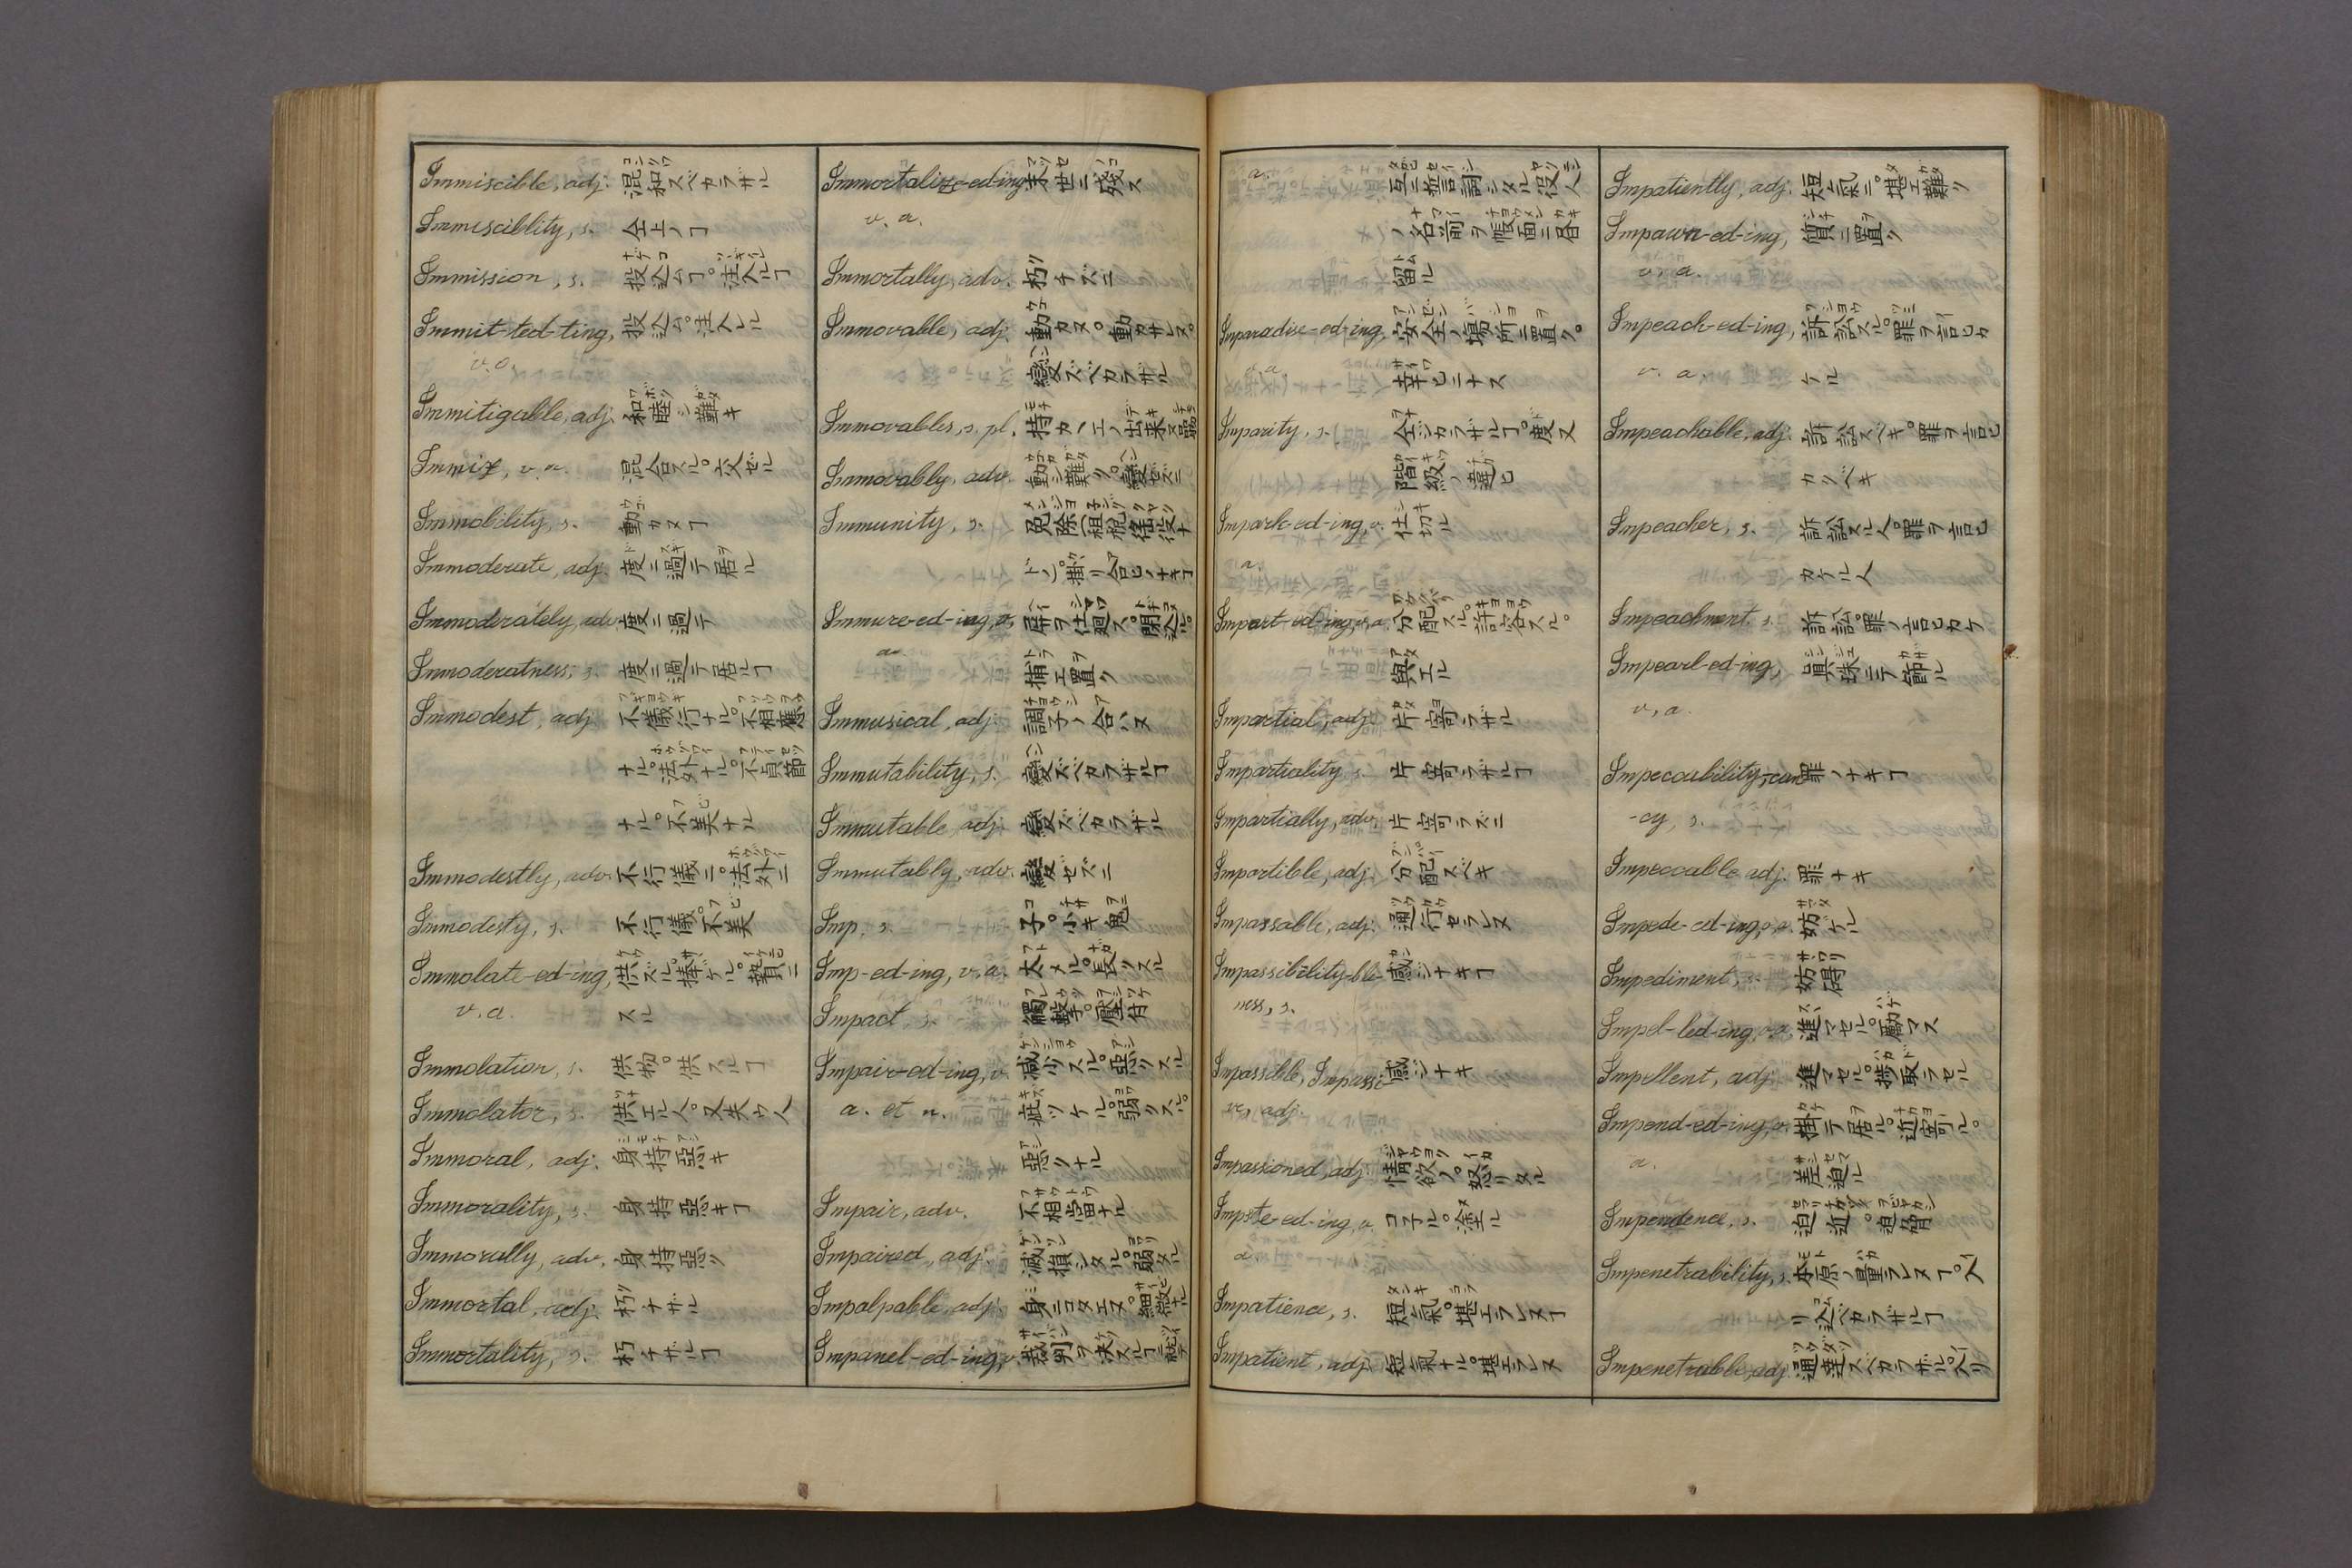 Immiscible, adj. 混和スベカラザル
Immisciblity, s. 仝上ノヿ
Immission, s. 投込ムヿ。注入ルヿ
Immit-ted-ting, 投込ム。注入レル
v. a.
Immitigable, adj. 和睦シ難キ
Immix, v. a. 混合スル。交ゼル
Immobility, s. 動カヌヿ
Immoderate, adj. 度ニ過テ居ル
Immoderately, adv. 度ニ過テ
Immoderatness, s. 度ニ過テ居ルヿ
Immodest, adj. 不儀行ナル。不相應
ナル。法外ナル。不貞節
ナル。不美ナル
Immodestly, adv. 不行儀ニ。法外ニ
Immodesty, s. 不行儀。不美
Immolate-ed-ing, 供ズル。捧ケル。贄ニ
v. a. スル
Immolation, s. 供物。供スルヿ
Immolator, s. 供エル人。又失ウ人
Immoral, adj. 身持惡キ
Immorality, s. 身持惡キヿ
Immorally, adv. 身持惡ク
Immortal, adj. 朽チザル
Immortality, s. 朽チザルヿ
Immortalize-ed-ing 末世ニ殘ス
v. a.
Immortally, adv. 朽チズニ
Immovable, adj. 動カヌ。動カサレヌ。
變ズベカラザル
Immovables, s. pl. 持カヘエノ出来ヌ品
Immovably, adv. 動シ難ク。變ゼズニ
Immunity, s. 免除(租税徭役ナ
ドノ)。掛リ合ヒノナキヿ
Immure-ed-ing, v. 屏ヲ仕廻ス。閉込ル。
a. 捕エ置ク
Immusical, adj. 調子ノ合ハヌ
Immutability, s. 變ズベカラザルヿ
Immutable, adj. 變ズベカラザル
Immutably, adv. 變ゼズニ
Imp, s. 子。小キ鬼
Imp-ed-ing, v. a. 太メル。長クスル
Impact, s. 觸撃。壓付
Impair-ed-ing, v. 減少スル。惡クスル
a. et n. 疵ツケル。弱クスル。
惡クナル
Impair, adv. 不相當ナル
Impaired, adj. 減損シタル。弱タル
Impalpable, adj. 身ニコタエヌ。細微ナル
Impanel-ed-ing, v. 裁判ヲ決スル
a. 互二並言調シタル役人
ノ名前ヲ帳面ニ書
留ル
Imparadise-ed-ing, 安全ノ塲所ニ置ク。
v. a. 幸ヒニナス
Imparity, s. 仝ジカラザルヿ。度又
階級ノ違ヒ
Impark-ed-ing, v. 仕切ル
a.
Impart-ed-ing, v. a. 分配スル。許容スル。
與エル
Impartial, adj. 片寄ラザル
Impartiality, s. 片寄ラザルヿ
Impartially, adv. 片寄ラズニ
Impartible, adj. 分配スベキ
Impassable, adj. 通行セラレヌ
Impassibility-ble- 感ジナキヿ
ness, s.
Impassible, Impassi- 感ジナキ
ve, adj.
Impassioned, adj. 情欲ノ。怒リタル
Impste-ed-ing, v. コ子ル。塗ル
a.
Impatience, s. 短氣。堪エラレヌヿ
Impatient, adj. 短氣ナル。堪エラレヌ
Impatiently, adj. 短氣ニ。堪エ難ク
Impawn-ed-ing, 質ニ置ク
v. a.
Impeach-ed-ing, 訴訟スル。罪ヲ言ヒカ
v. a. ケル
Impeachable, adj. 訴訟スベキ。罪ヲ言ヒ
カクベキ
Impeacher, s. 訴訟スル人。罪ヲ言ヒ
カケル人
Impeachment, s. 訴訟。罪ノ言ヒカケ
Impearl-ed-ing, 眞珠ニテ飾ル
v, a.
Impeccability, -can 罪ノナキヿ
-cy, s.
Impeccable adj. 罪ナキ
Impede-ed-ing, v. a. 妨ゲル
Impediment, s. 妨碍
Impel-led-ing, v. a. 進マセル。勵マス
Impellent, adj. 進マセル。捗取ラセル
Impend-ed-ing, v. 掛テ居ル。近寄ル。
a. 差迫ル
Impendence, s. 迫近。迫脅
Impenetrability, s. 本原ノ量ラレヌヿ。入
リ込ベカラザルヿ
Impenetrable, adj. 通達スベカラザル。入リ